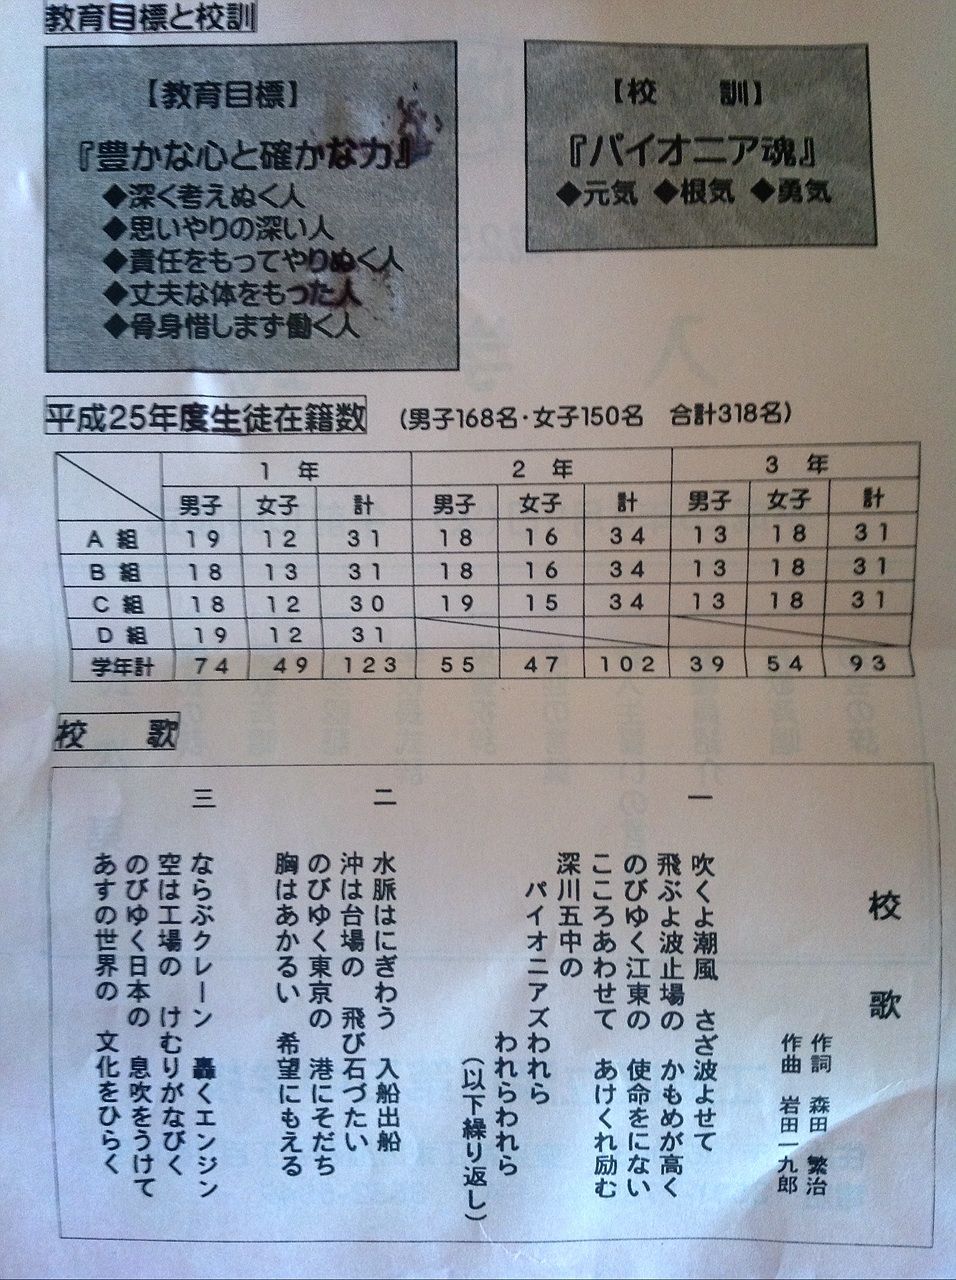 教育目標と校訓
【教育目標】
『豊かな心と確かな力』
◆深く考えぬく人
◆思いやりの深い人
◆責任をもってやりぬく人
◆丈夫な体をもった人
◆骨身惜しまず働く人
【校　訓】
『パイオニア魂』
◆元気 ◆根気 ◆勇気
平成25年度生徒在籍数 （男子168名・女子150名　合計318名）
1 年 2 年 3 年
男子 女子 計 男子 女子 計 男子 女子 計
A 組 19 12 31 18 16 34 13 18 31
B 組 18 13 31 18 16 34 13 18 31
C 組 18 12 30 19 15 34 13 18 31
D 組 19 12 31
学年計 74 49 123 55 47 102 39 54 93
校　歌
校　歌
作詞　森田　繁治
作曲　岩田一九郎
一　吹くよ潮風　さざ波よせて
飛ぶよ波止場の　かもめが高く
のびゆく江東の　使命をにない
こころあわせて　あけくれ励む
深川五中の
パイオニアズわれら
われらわれら
（以下繰り返し）
二　水脈はにぎわう　入船出船
沖は台場の　飛び石づたい
のびゆく東京の　港にそだち
胸はあかるい　希望にもえる
三　ならぶクレーン　轟くエンジン
空は工場の　けむりがなびく
のびゆく日本の　息吹をうけて
あすの世界の　文化をひらく